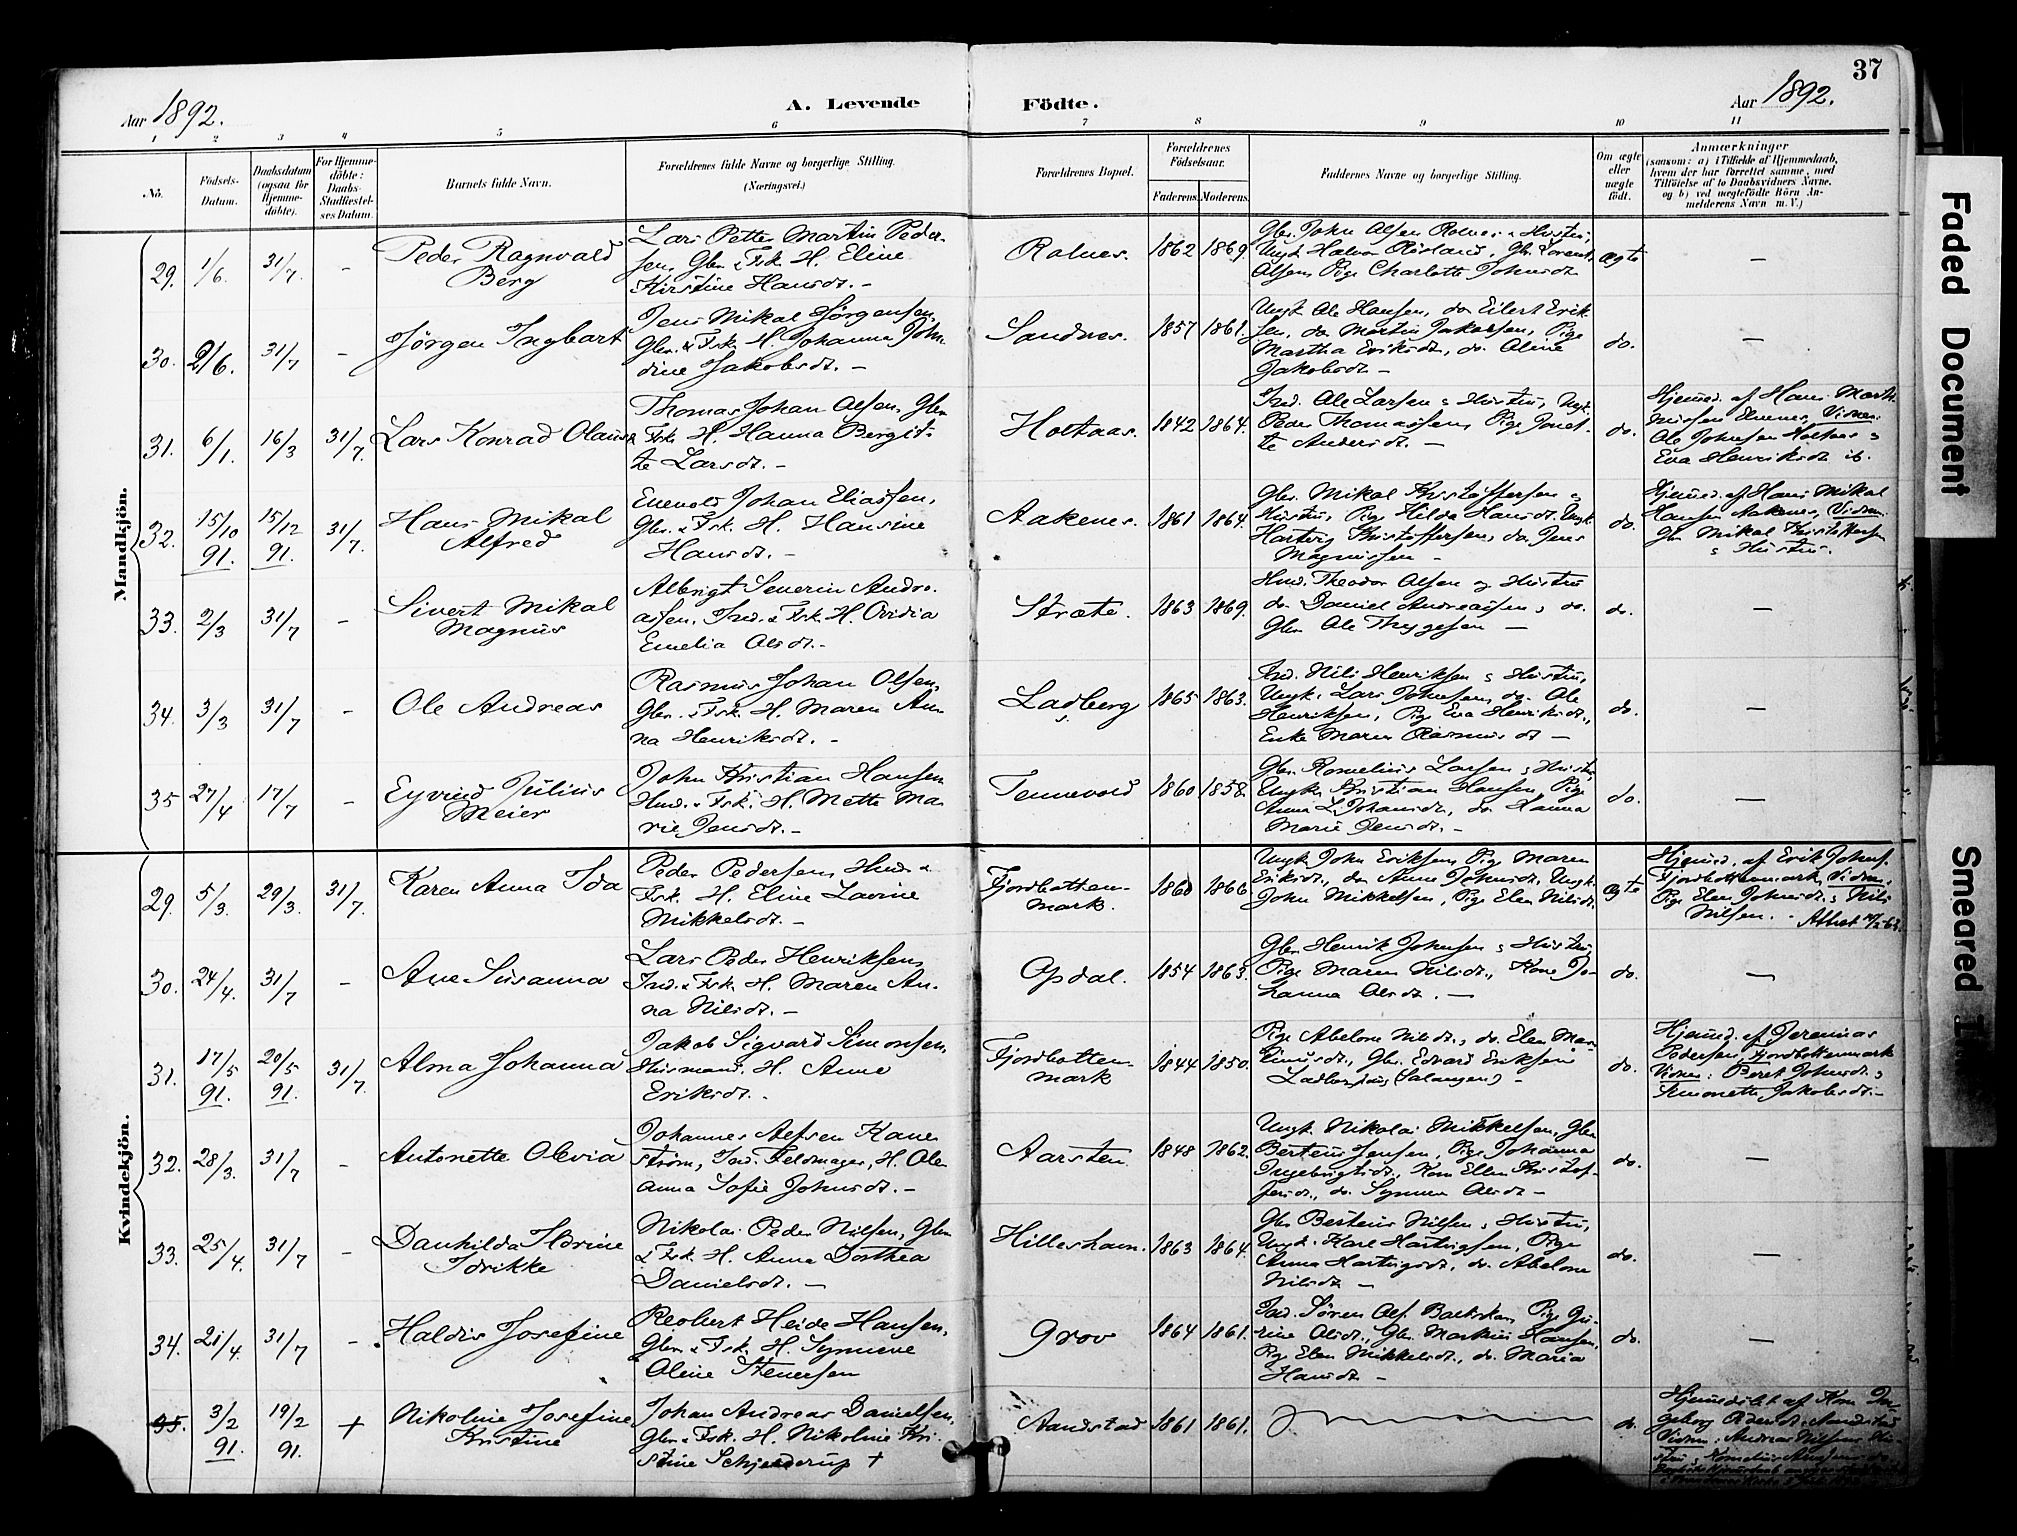 37
Aar 1892.
A. Levende
Födte.
Aar 1892.
1 2 3 4 5 6 7 8 9 10 11
No.
Födsels-
Datum.
Daabsdatum
(ogsaa for
Hjemme-
döbte).
For Hjemme-
döbte:
Daabs-
Stadfæstel-
ses Datum.
Barnets fulde Navn.
Forældrenes fulde Navne og borgerlige Stilling.
(Næringsvei.)
Forældrenes Bopæl.
Forældrenes
Födselsaar.
Faderens.
Moderens.
Faddernes Navne og borgerlige Stilling.
Om ægte
eller
uægte
födt.
Anmærkninger
(saasom: a) i Tilfælde af Hjemmedaab,
hvem der har forrettet samme, med
Tilföielse af to Daabsvidners Navne,
og b) ved uægtefödte Börn An-
melderens Navn m. V.)
Mandkjön.
29. 1/6. 31/7. -
Peder Ragnvald
Berg
Lars Petter Martin Peder-
sen, Gbr. & Fsk. H. Eline
Kirstine Hansdt. -
Rolnes. 1862 1869.
Gbr. John Olsen Rolnes & Hustru,
Olsen, Pige Charlotte Johnsdt
ægte —
30. 2/6. 31/7 -
Jörgen Ingbart
Jens Mikal Jörgensen,
Gbr. & Fsk. H. Johanna John-
dine Jakobsdt. -
Sandnes. 1857 1861.
Ungk. Ole Hansen, do Eilert Erik-
sen, do Martin Jakobsen, Pige
Martha Eriksdt., do. Oline
Jakobsdt -
do. —
31. 6/1. 16/3 31/7.
Lars Konrad Olaus
Thomas Johan Olsen, Gbr.
& Fsk. H. Hanna Bergit-
te Larsdt. -
Holtaas. 1842 1864.
Ind. Ole Larsen & Hustru, Ungk.
Peder Thomassen, Pige Jonet-
te Andersdt. -
do.
Hjemmed. af Hans Mart.
Nilsen Elvenes, Vidner:
Ole Johnsen Holtaas &
Eva Henriksdt ib.
32. 15/10 91. 15/12 91. 31/7.
Hans Mikal
Alfred
Enevold Johan Eliassen,
Gbr. & Fsk. H. Hansine
Hansdt. -
Aakenes. 1861 1864.
Gbr. Mikal Kristoffersen &
Hustru, Pige Hilda Hansdt. Ungk.
Hartvig Kristoffersen, do Jens
Magnussen -
do.
Hjemmed. af Hans Mikal
Hansen Aakenes, Vidner:
Gbr Mikal Kristoffersen
& Hustru.
33. 2/3 31/7 -
Sivert Mikal
Magnus
Albrigt Severin Andre-
assen, Ind. & Fsk. H. Ovidia
Emelia Olsdt. -
Stræte. 1863 1869.
Husm. Theodor Olsen og Hustru
do Daniel Andreassen, do.
Gbr Ole Thygesen —
do. —
34. 3/3 31/7 -
Ole Andreas
Rasmus Johan Olsen,
Gbr. & Fsk. H. Maren An-
na Henriksdt. -
Ladberg 1865 1863.
Ind. Nils Henriksen & Hustru,
Ungk. Lars Johnsen, do. Ole
Henriksen, Pige Eva Henriksdt.,
Enke Maren Rasmusdt —
do. —
35 27/4 17/7 -
Eyvind Julius
Meier
John Kristian Hansen
Husm. & Fsk. H. Mette Ma-
rie Jensdt. -
Tennevold 1860 1858.
Gbr. Kornelius Larsen & Hustru,
Ungk. Kristian Hansen, Pige
Anna L. Johansdt, do Hanna
Marie Jensdt. -
do. —
Kvindekjön.
29. 5/3. 29/3. 31/7.
Karen Anna Ida
Peder Pedersen, Husm. &
Fsk. H. Eline Lavine
Mikkelsdt. -
Fjordbotten-
mark. 1860 1866
Ungk. John Eriksen, Pige Maren
Eriksdt., do Anne Johnsdt. Ungk.
John Mikkelsen, Pige Elen Nilsdt.
ægte
Hjemmed. af Erik Johns.
Fjordbottenmark, Vidner:
Pige Elen Johnsdt. & Nils
Nilsen. -
30. 24/4. 31/7 -
Ane Susanna
Lars Peder Henriksen,
Ind. & Fsk. H. Maren An-
na Nilsdt. -
Opdal. 1854 1863.
Gbr Henrik Johnsen & Hustru,
Pige Maren Nilsdt., Kone Jo-
hanna Olsdt. —
do. —
31. 17/5 91. 20/5 91. 31/7.
Alma Johanna
Jakob Sigvard Simonsen,
Husmand. H. Anne
Eriksdt. -
Fjordbotten-
mark 1844 1850.
Pige Abelone Nilsdt., do. Elen Mar-
tinusdt., Gbr. Edvard Eriksen
Ladberg (Salangen) -
do.
Hjemmed. af Jeremias
Pedersen, Fjordbottenmark
Vidner: Beret Johnsdt. &
Simonette Jakobsdt. -
32. 28/3. 31/7 -
Antonette Olevia
Johannes Alfsen Kane-
ström, Ind. Feldmager, H. Ole-
anna Sofie Johnsdt. -
Aarsten 1848 1862.
Ungk. Nikolai Mikkelsen, Gbr
Berteus Jensen, Pige Johanna
Ingebrigtsdt., Kone Ellen Kristof-
fersdt., do. Synneva Olsdt -
do. —
33. 25/4. 31/7 -
Danhilda Hdrine
Idrikke
Nikolai Peder Nilsen, Gbr
& Fsk. H. Anna Dorthea
Danielsdt. -
Hilleshavn. 1863 1864.
Gbr Berteus Nilsen & Hustru,
Ungk. Karl Hartvigsen, Pige
Anna Hartvigsdt, do. Abelone
Nilsdt —
do. —
34. 21/4. 31/7 -
Haldis Josefine
Reobert Heide Hansen,
Gbr & Fsk. H. Synneve
Oline Stenersen
Grov 1864 1861.
Ind. Sören Ols. Pige Gu-
rine Olsdt., Gbr. Markus Hansen,
Pige Elen Mikkelsdt., do. Maria
Hansdt -
do. —
35. 3/2 91. 19/2 91. +
Nikoline Josefine
Kristine
Johan Andreas Danielsen,
Gbr. & Fsk. H. Nikoline Kri-
stine Schjelderup +
Aandstad 1861 1861.
do.
Hjemmedöbt af Kone In-
geborg Pedersdt. Aandstad
Vidner: Andreas Nilsen & Hu-
stru & Kornelius
Faded Document
Smeared